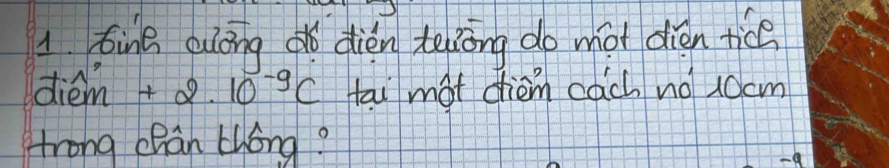 1. Tính cường độ điện trường do một điện tích
điểm + 2.10⁻⁹C tại một điểm cách nó 10cm
trong chân không?
-9